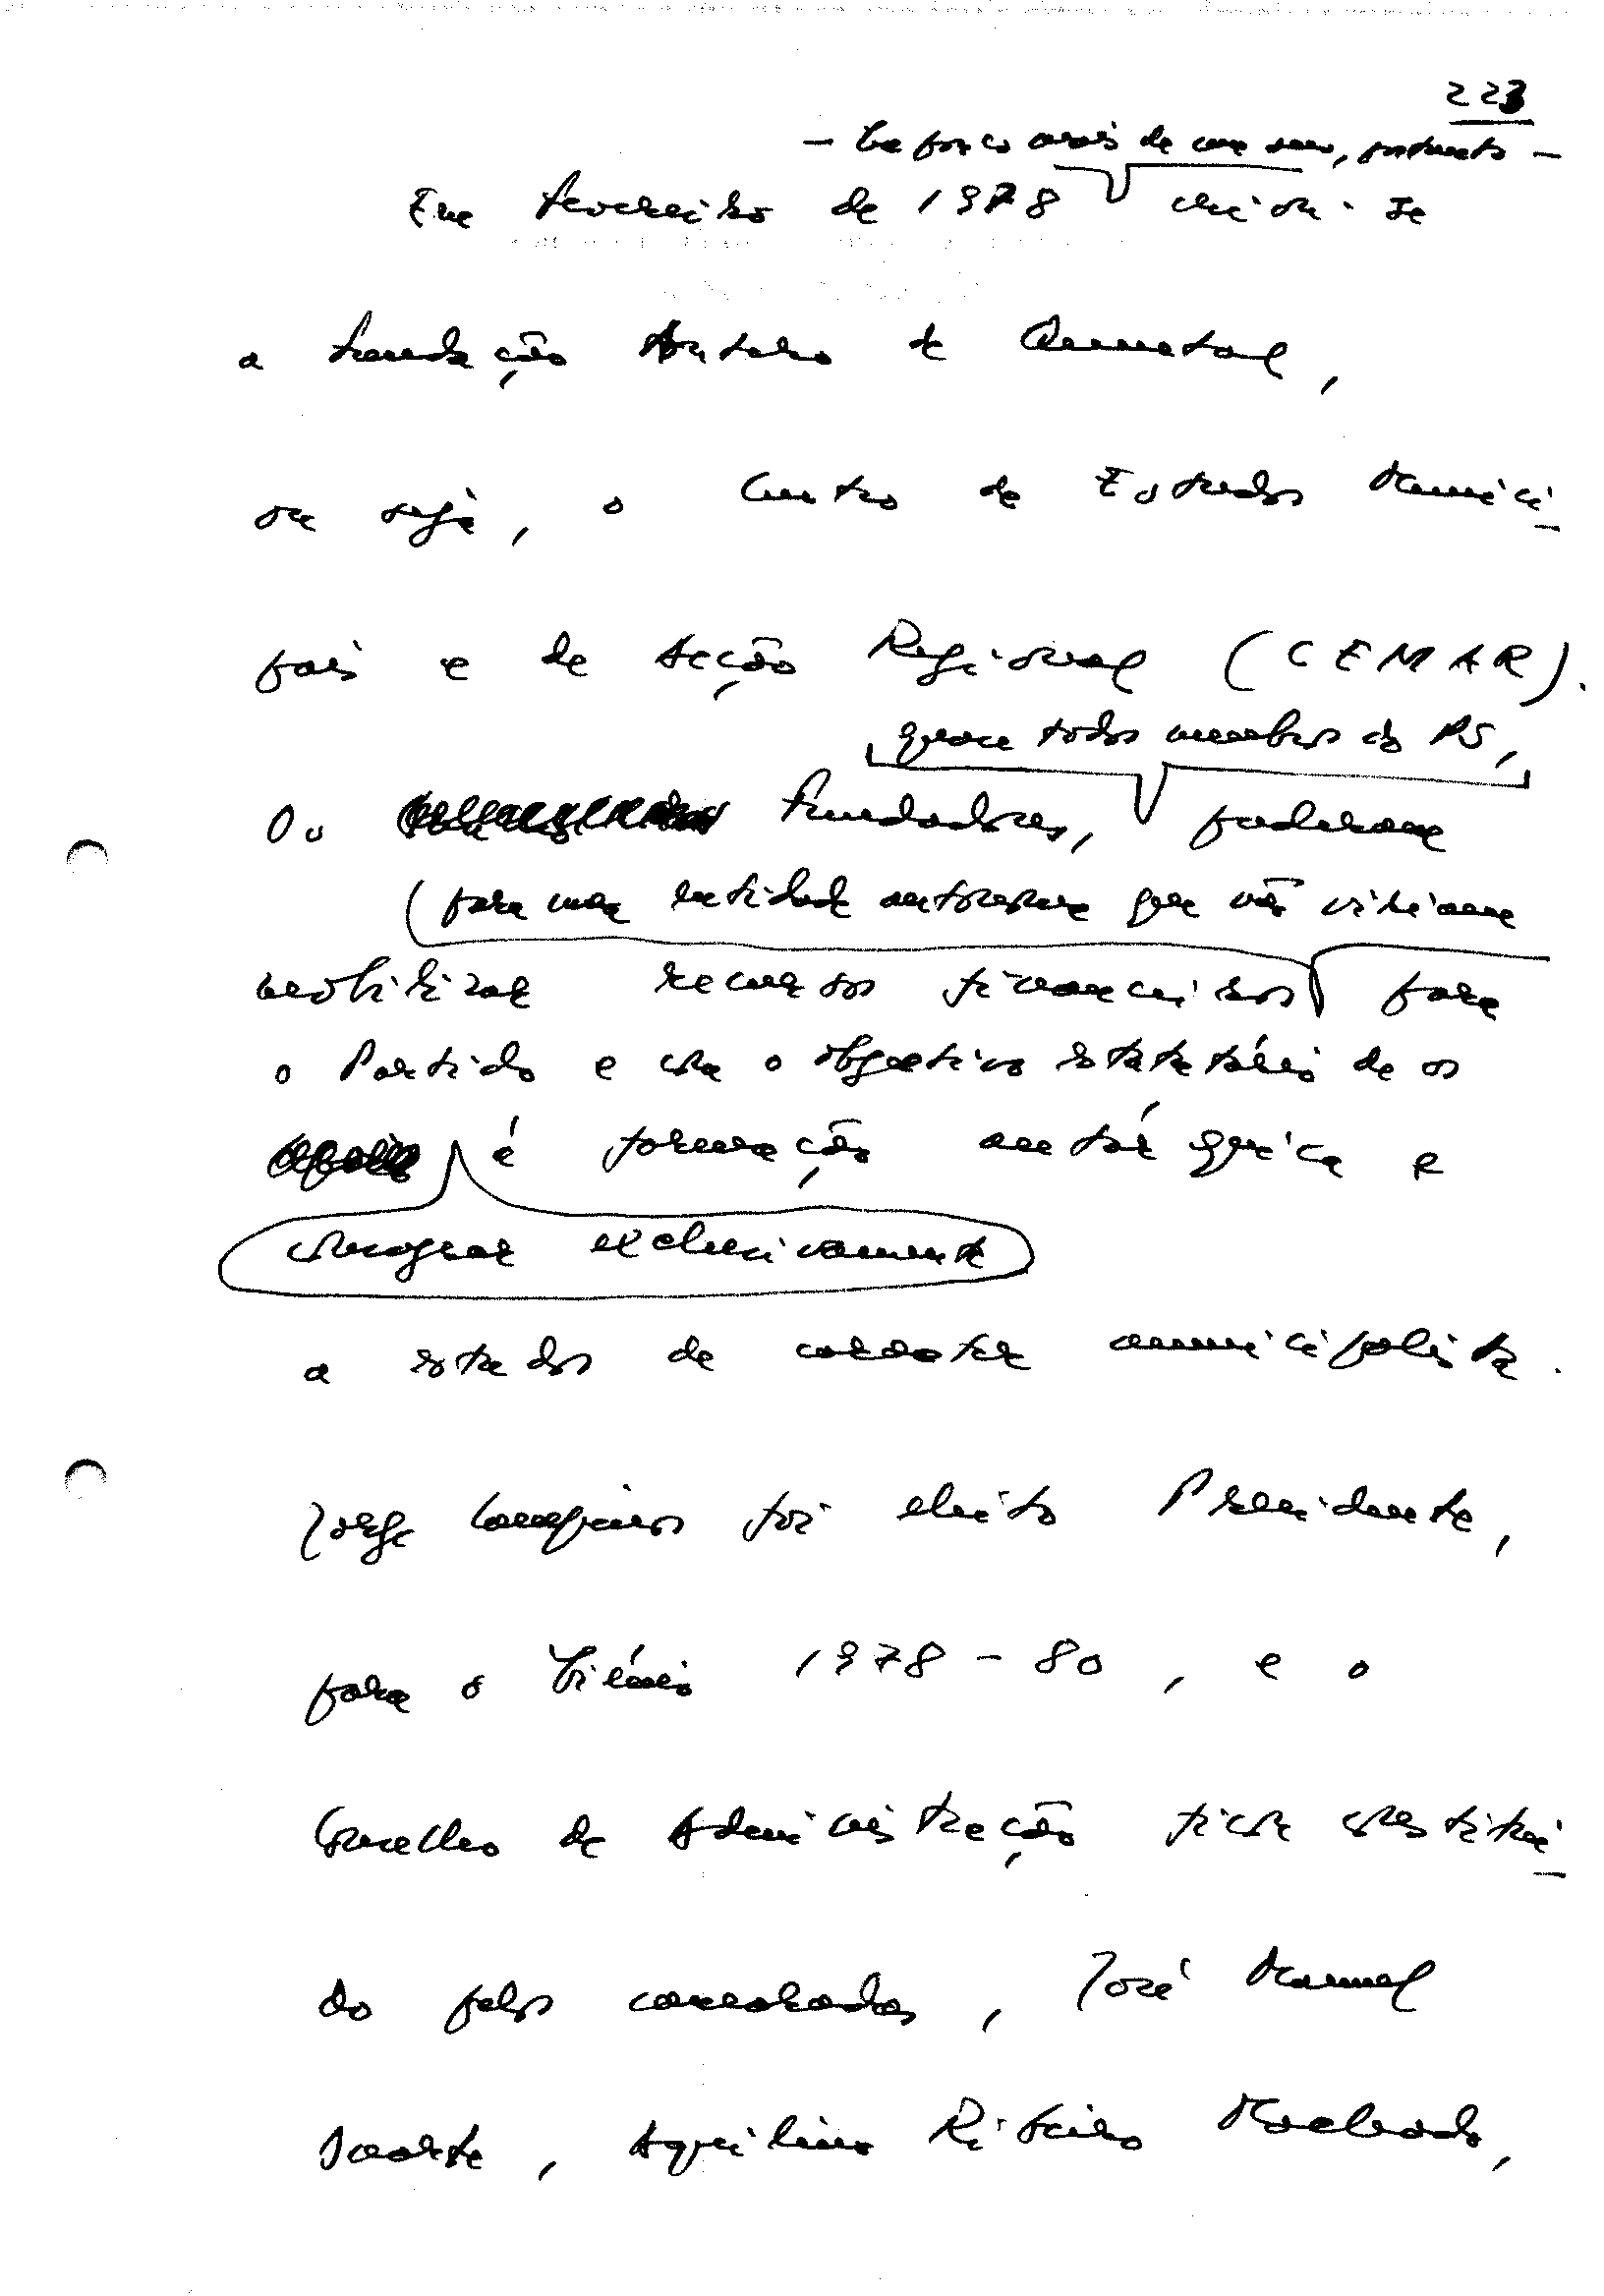 223
— há pouco mais de um ano, portanto —
Em Fevereiro de 1978 criou-se
a Fundação Antero de Quental,
ou seja, o Centro de Estudos Munici-
pais e de Acção Regional (CEMAR).
quase todos membros do PS,
Os Fundadores, puderam
(para uma entidade autónoma que não viriam
mobilizar recursos financeiros para
o Partido e com o objectivo estatutário de os
à formação autárquica e
consagrar exclusivamente
a estudos de carácter municipalista.
Jorge Campinos foi eleito Presidente,
para o biénio 1978-80, e o
Conselho de Administração ficou constituí-
do pelos camaradas, José Manuel
Duarte, Aquilino Ribeiro Machado,